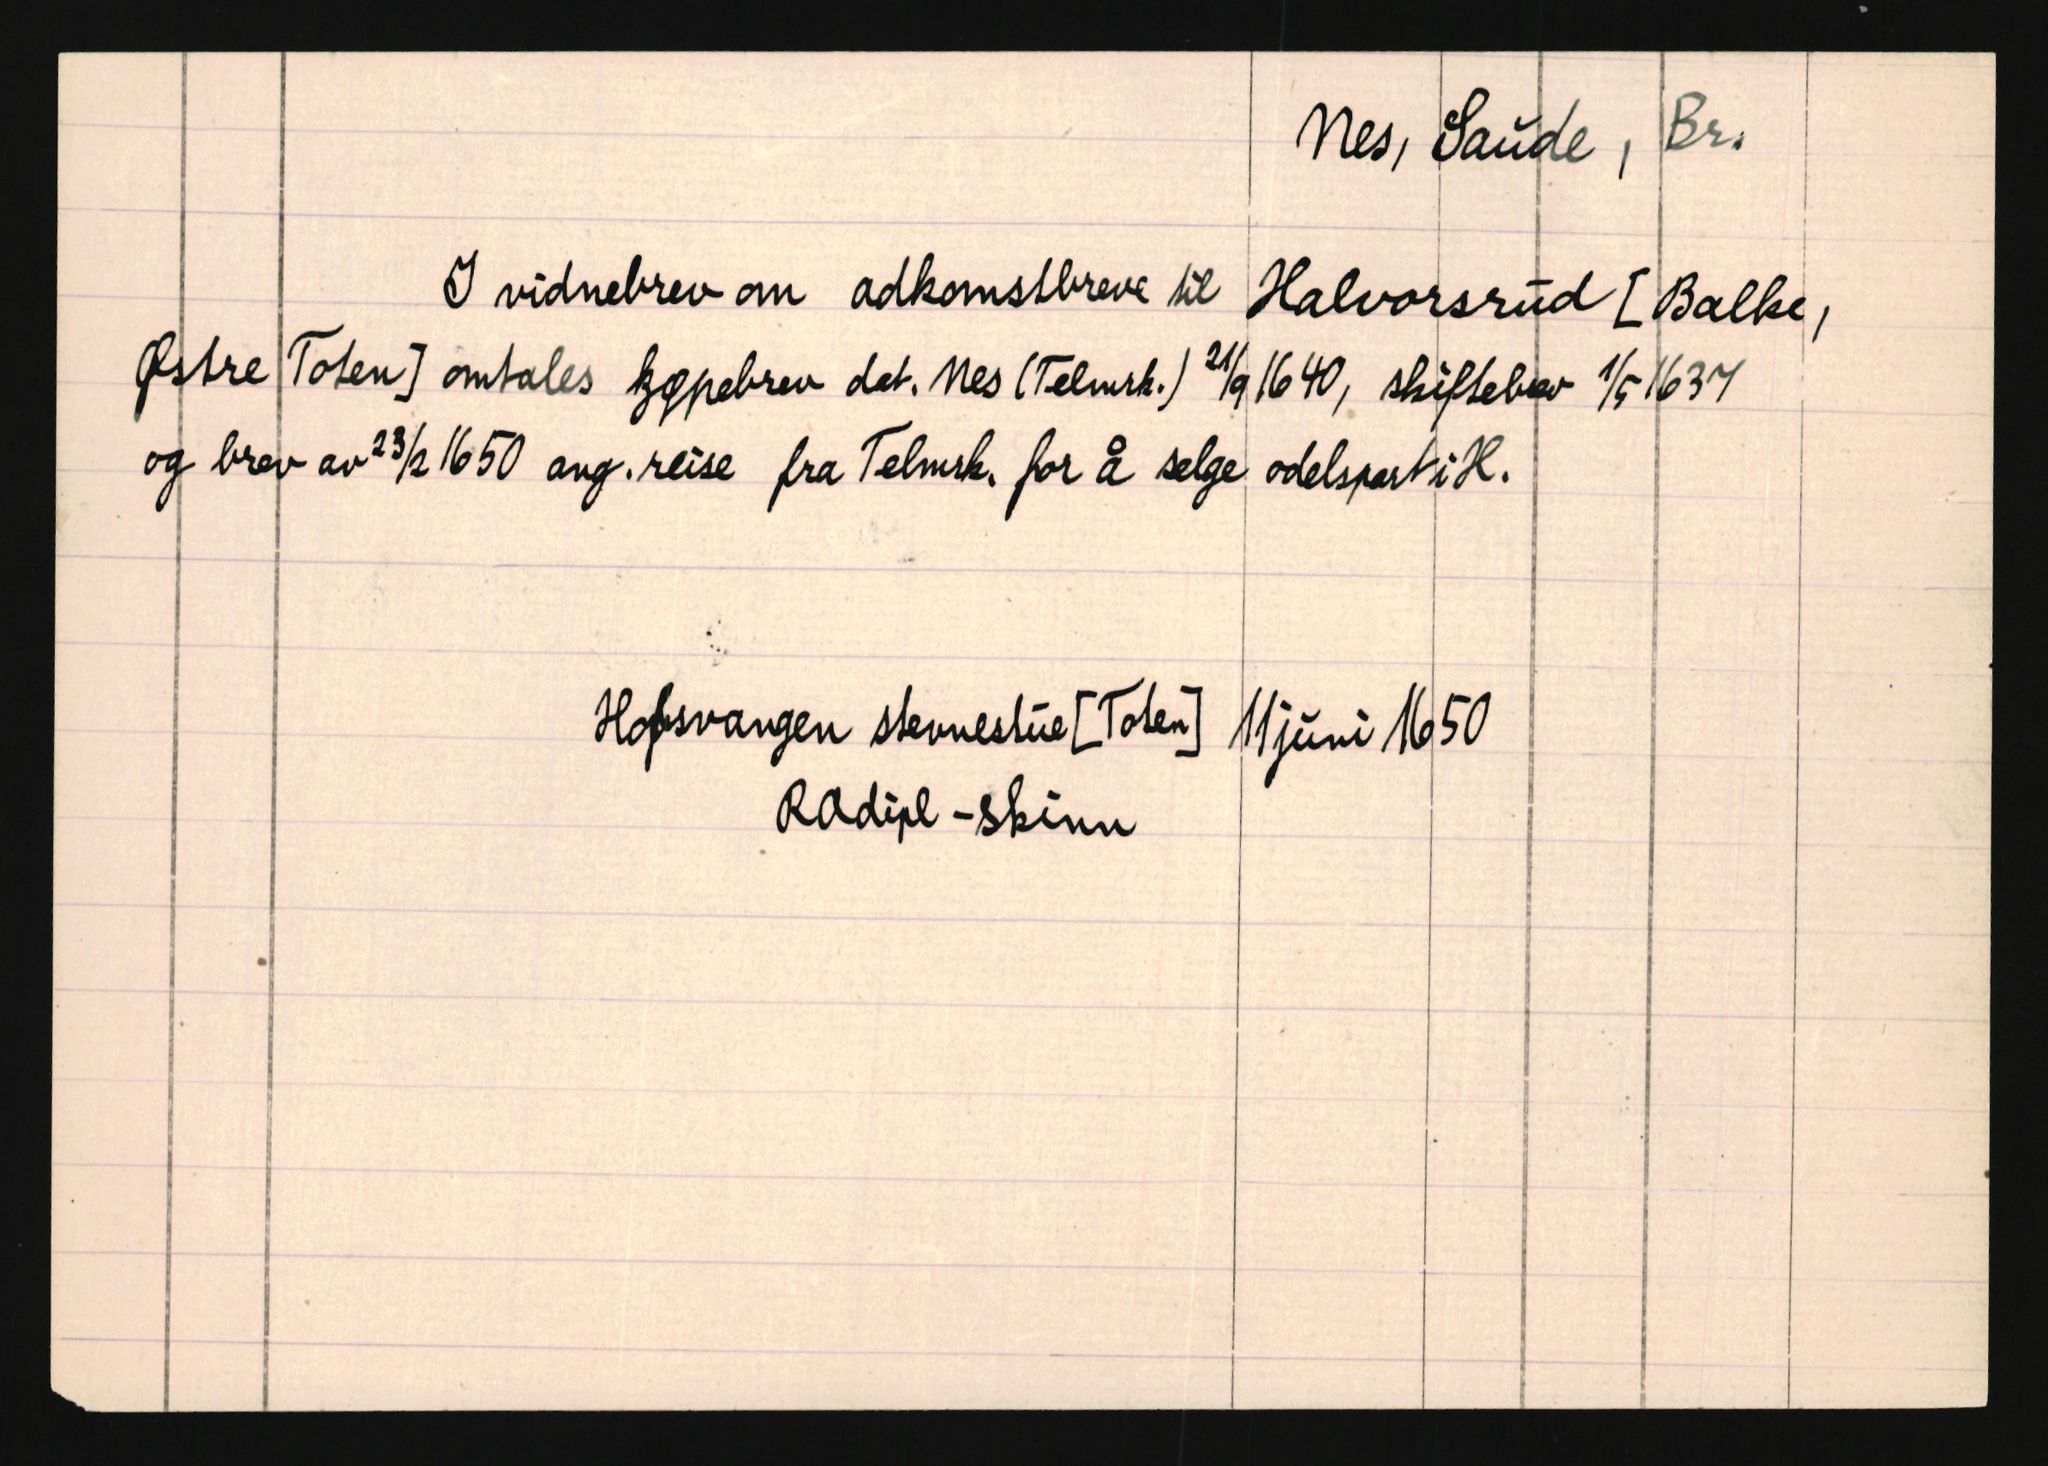 Nes, Saude, Br.
I vidnebrev om adkomstbreve til Halvorsrud [Balke,
Østre Toten] omtales kjøpebrev dat. Nes (Telmrk.) 21/9 1640, skiftebrev 1/5 1637
og brev av 23/2 1650 ang. reise fra Telmrk. for å selge odelspart i H.
Hofsvangen stevnestue [Toten] 11 juni 1650
RA dipl - skinn